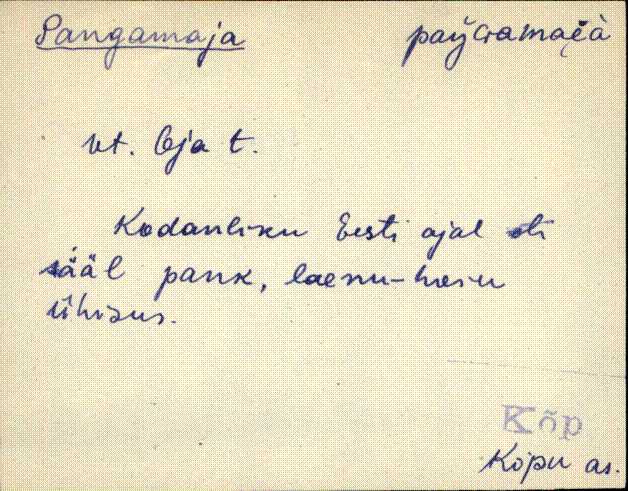 Pangamaja
vt. Oja t.
Kodanliku Eesti ajal oli
sääl pank, laenu-hoiu
ühisus.
Kõp
Kõpu as.